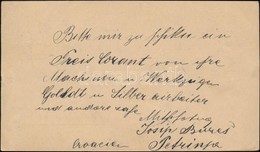 Bitte mir zu schiken ein
Preis Corant von ihre
Maschinen u Werkzeuge
Gold u Silber arbeiter
und andere
Mit Achtung
Josip Bureš
Croacien Petrinja